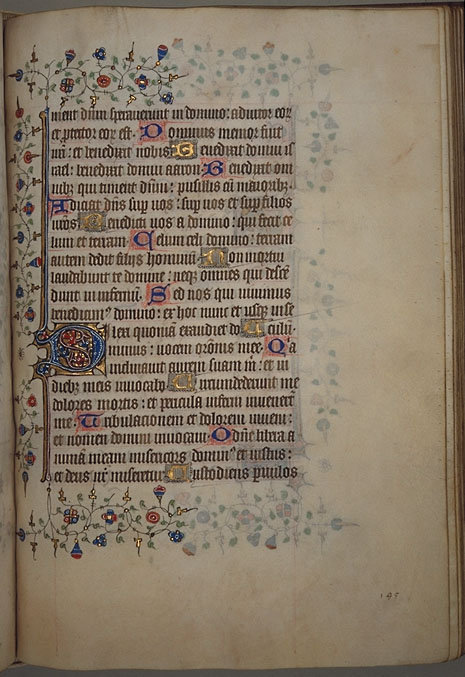 ment dñm sperauerunt in domino: adiutor eoꝝ
et ꝓtector eoꝝ est. Dominus memor fuit
nr̃i: et benedixit nobis. Benedixit domui is
rael: benedixit domui aaron. Benedixit om
nibꝫ qui timent dñm: pusillis cũ maioribꝫ.
Adiciat dñs suꝑ uos: suꝑ uos et suꝑ filios
ur̃os. Benedicti uos a domino: qui fecit ce
lum et terram. Celum celi domino: terram
autem dedit filijs hominum. Non mortui
laudabunt te domine: neqꝫ omnes qui descẽ
dunt in infernũ. Sed nos qui uiuimus
benedicimꝰ domino: ex hoc nunc et usqꝫ in se
Dilexi quoniã exaudiet do culũ.
minus: uocem or̃onis mee. Quia
inclinauit aurem suam m̃: et in
diebꝫ meis inuocabo. Circumdederunt me
dolores mortis: et pericula inferni inuener̃t
me. Tribulationem et dolorem inueni:
et nomen domini inuocaui. O dñe libera a
nimam meam misericors dominꝰ et iustus:
et deus nr̃ miseretur. Custodiens paruulos
195